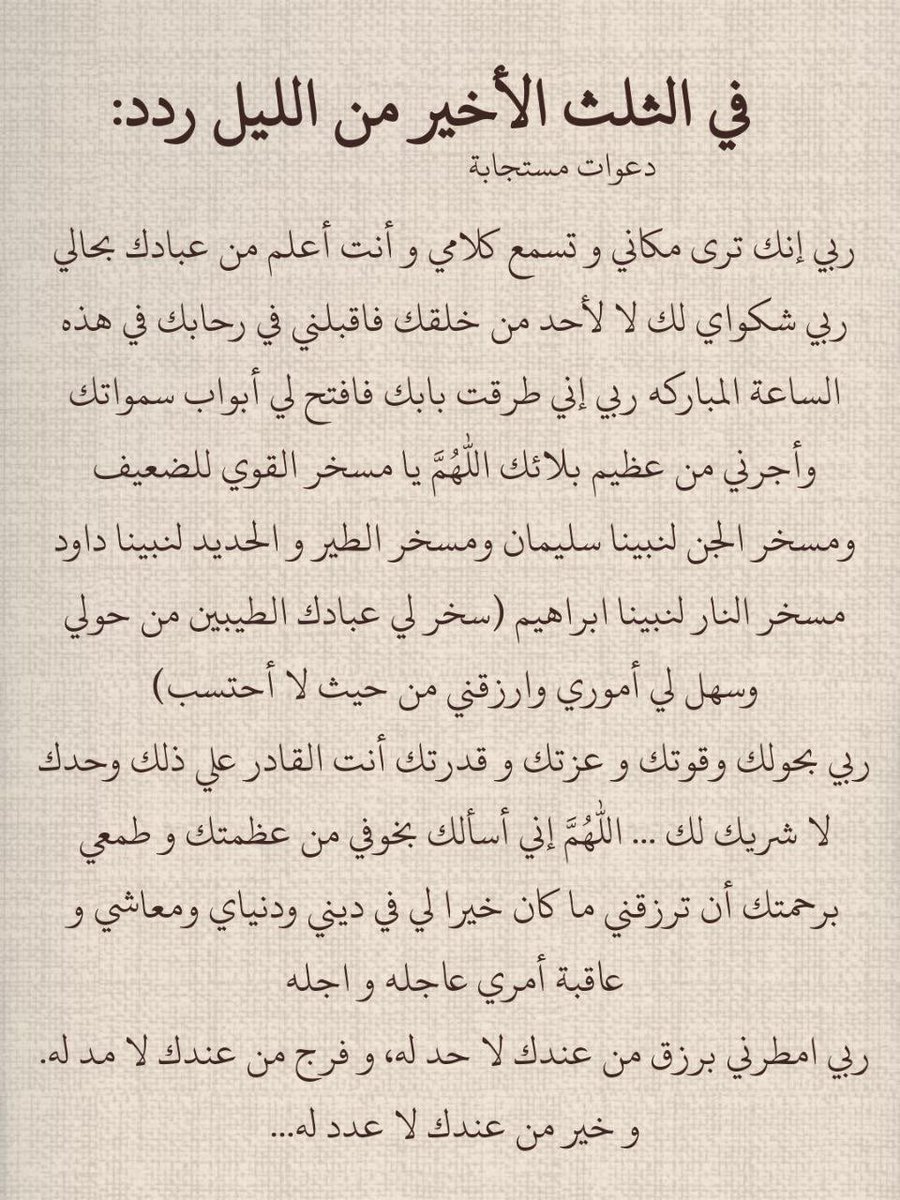 في الثلث الأخير من الليل ردد:
دعوات مستجابة
ربي إنك ترى مكاني و تسمع كلامي و أنت أعلم من عبادك بحالي
ربي شكواي لك لا لأحد من خلقك فاقبلني في رحابك في هذه
الساعة المباركه ربي إني طرقت بابك فافتح لي أبواب سمواتك
وأجرني من عظيم بلائك اللّٰهُمَّ يا مسخر القوي للضعيف
ومسخر الجن لنبينا سليمان ومسخر الطير و الحديد لنبينا داود
مسخر النار لنبينا ابراهيم (سخر لي عبادك الطيبين من حولي
وسهل لي أموري وارزقني من حيث لا أحتسب)
ربي بحولك وقوتك و عزتك و قدرتك أنت القادر علي ذلك وحدك
لا شريك لك ... اللّٰهُمَّ إني أسألك بخوفي من عظمتك و طمعي
برحمتك أن ترزقني ما كان خيرا لي في ديني ودنياي ومعاشي و
عاقبة أمري عاجله و اجله
ربي امطرني برزق من عندك لا حد له، و فرج من عندك لا مد له.
و خير من عندك لا عدد له...